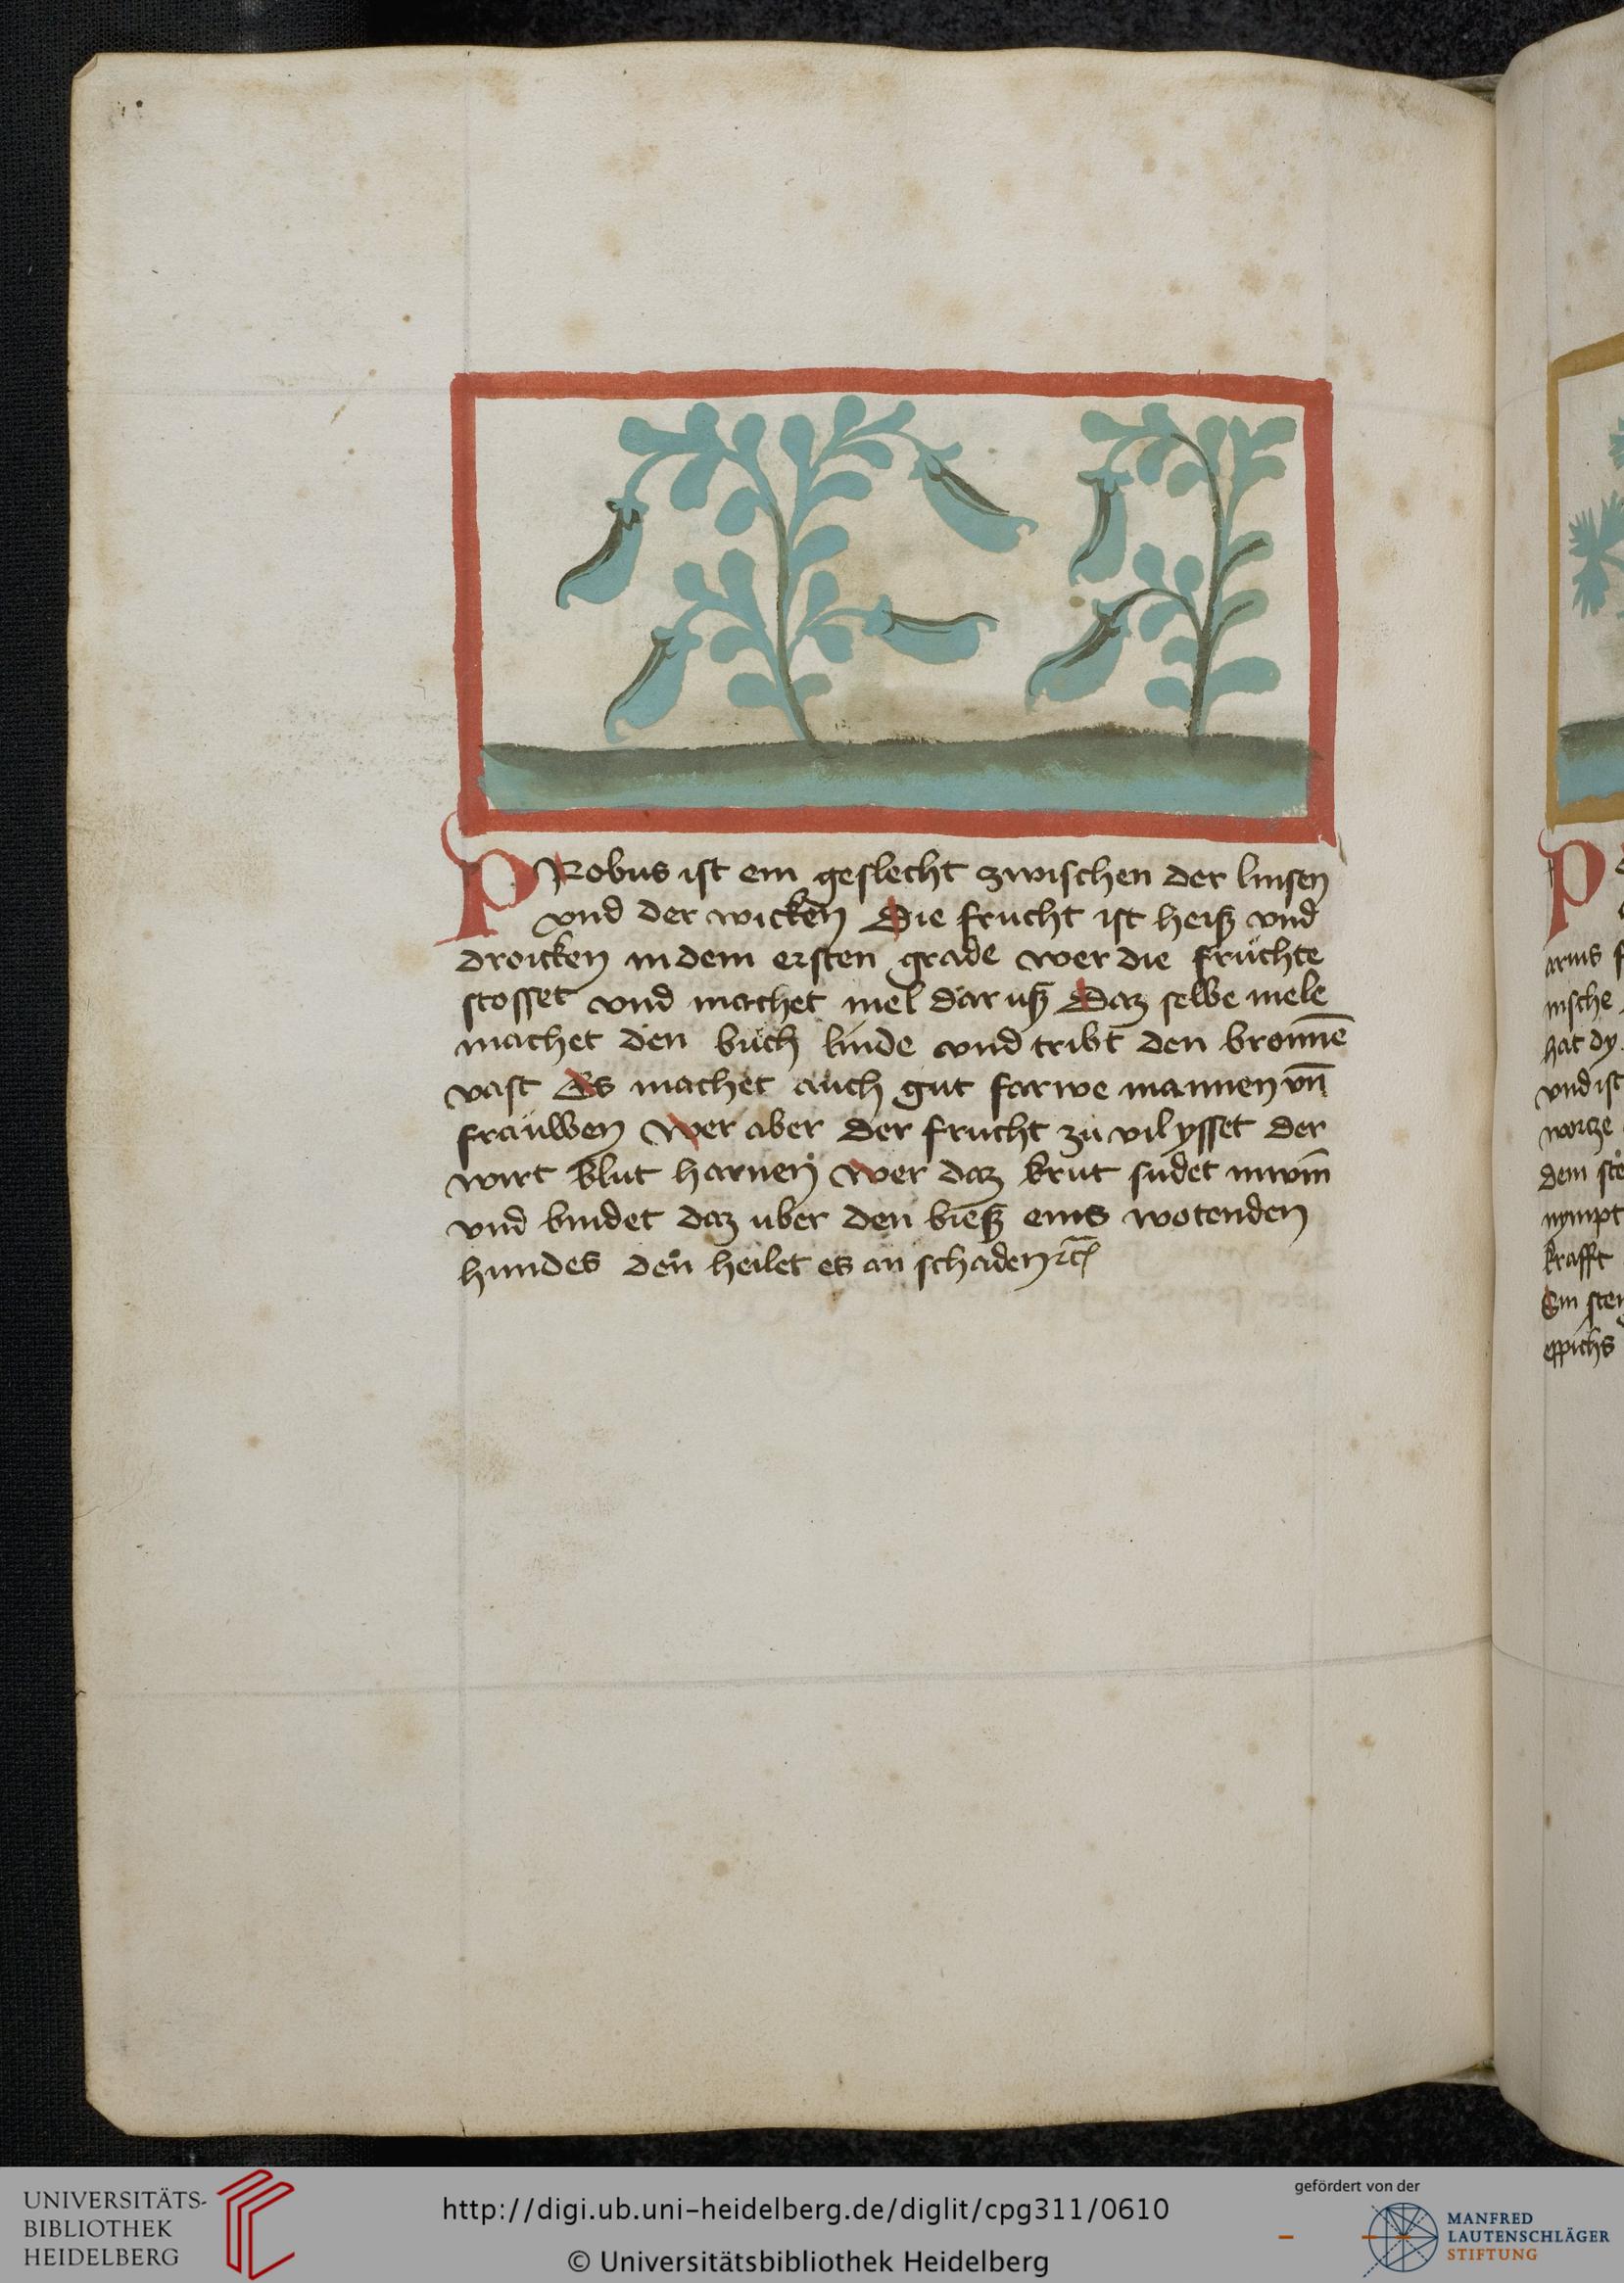 PRobus ist ein geslecht zwischen der linsen
vnd der wicken Die frucht ist heisz vnd
droicken in dem ersten grade wer die früchte
stosset vnd machet mel dar usz Daz selbe mele
machet den buch linde vnd tribt den bronnē
vast Es machet auch gut farwe mannen vn̄
frauwen Wer aber der frucht zu vil ysset der
wirt blut harnen wer daz krut sudet in win
vnd bindet daz uber den biesz eins wotenden
hundes den heilet es an schaden
P
arms
nische
hat dy
vnd ist
wortze
dem
nympt
krafft
Ein
eppichs
UNIVERSITÄTS-
BIBLIOTHEK
HEIDELBERG
http://digi.ub.uni-heidelberg.de/diglit/cpg311/0610
© Universitätsbibliothek Heidelberg
gefördert von der
MANFRED
LAUTENSCHLÄGER
STIFTUNG